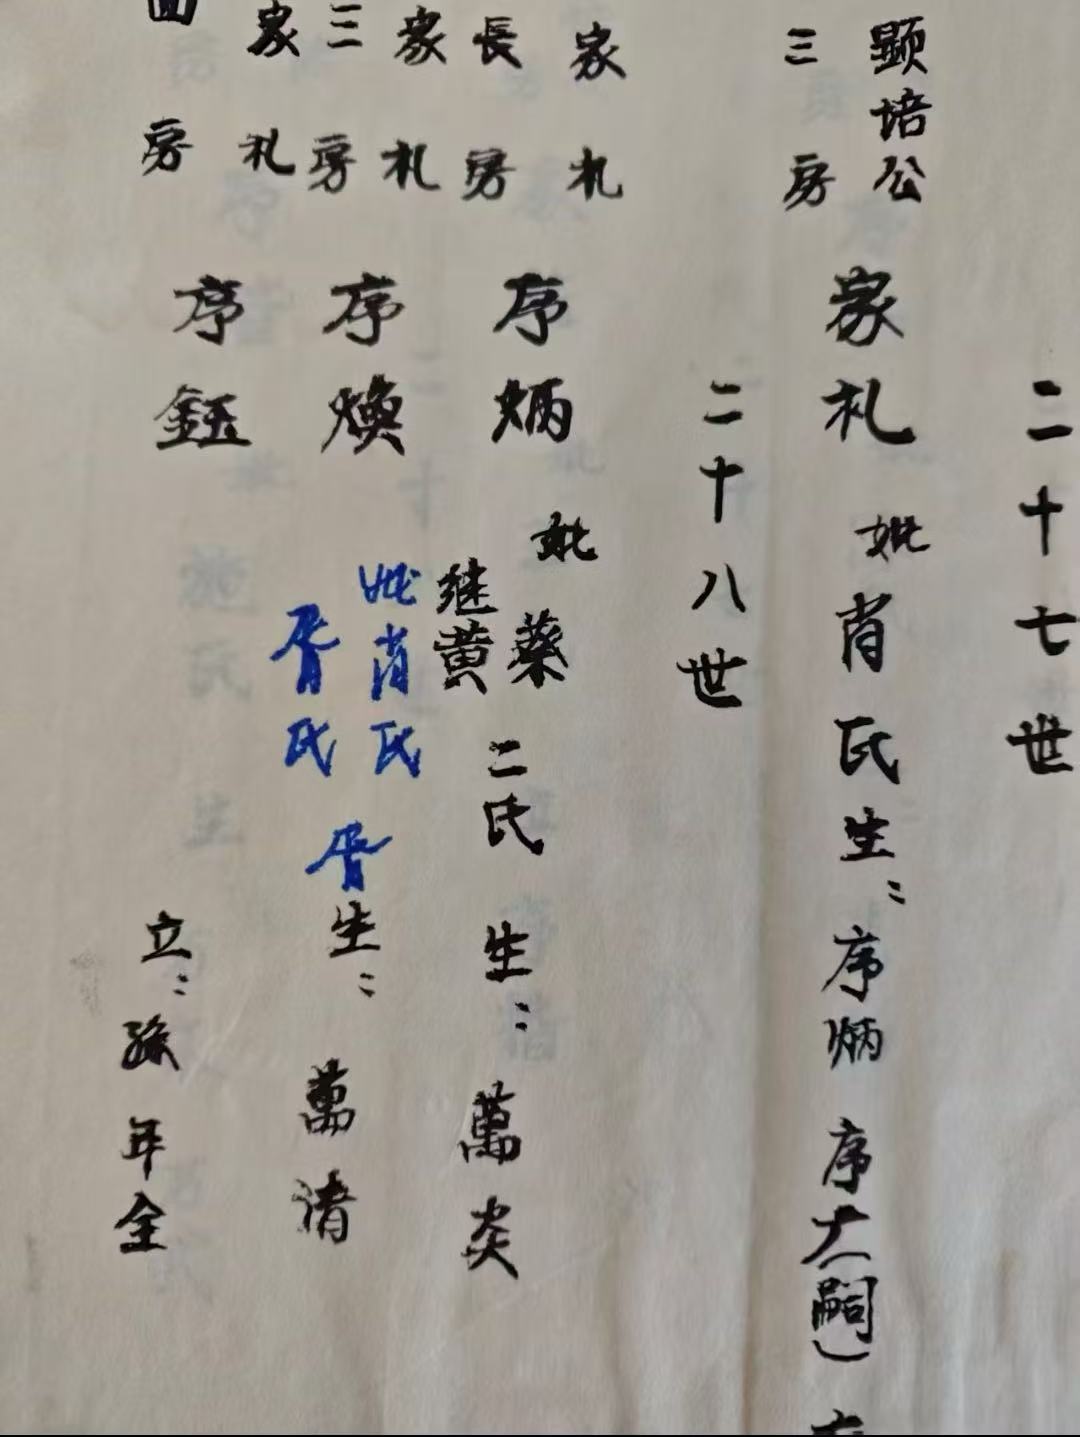 二十七世
顕培公
三房
家札 妣肖氏生：序炳 序大（嗣）
二十八世
家札
長房
序炳 妣蔡
继黄
二氏 生：萬炎
家札
三房
序煥 妣肖氏
胥氏
胥生：萬清
家札
房
序鈺 立：孫年全